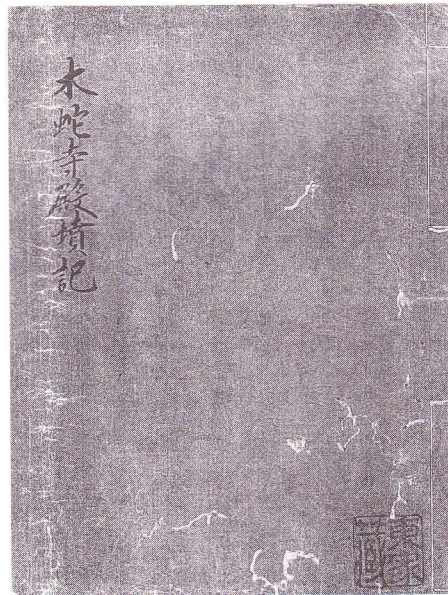 木蛇寺殿墳記